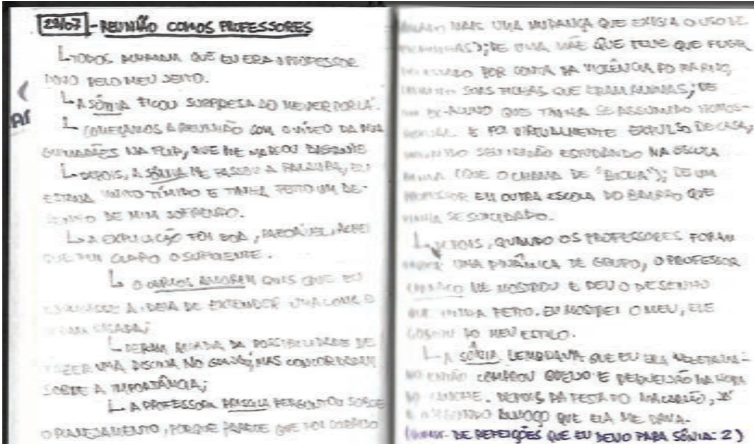 29/07 - REUNIÃO COM OS PROFESSORES
TODOS ACHAVAM QUE EU ERA PROFESSOR
NOVO PELO MEU JEITO.
A SÔNIA FICOU SURPRESA AO ME VER POR LÁ.
COMEÇAMOS A REUNIÃO COM O VÍDEO DA
GUIMARÃES NA FLIP, QUE ME MARCOU BASTANTE
DEPOIS, A SÔNIA ME PASSOU A PALAVRA, EU
ESTAVA MUITO TÍMIDO E TINHA FEITO UM DE-
DE MIM SOFRENDO.
A EXPLICAÇÃO FOI BOA, FAVORÁVEL, ACHEI
QUE FUI CLARO O SUFICIENTE.
QUIS QUE EU
A IDEIA DE EXTENDER UMA COMO
DERAM RISADA DA POSSIBILIDADE DE
FAZER UMA PISCINA NO MAS CONCORDARAM
SOBRE A IMPORTÂNCIA;
A PROFESSORA PERGUNTOU SOBRE
O PLANEJAMENTO, PORQUE PARECE QUE FOI
MAIS UMA MUDANÇA QUE EXIGIA O USO DE
DE UMA MÃE QUE TEVE QUE FUGIR
POR CONTA DA VIOLÊNCIA DO MARIDO,
SUAS FILHAS QUE ERAM ALUNAS; DE
UM EX-ALUNO QUE TINHA SE ASSUMIDO HOMOS-
E FOI VIRTUALMENTE EXPULSO DE CASA,
SEU IRMÃO ESTUDANDO NA ESCOLA
QUE O CHAMA DE "BICHA"); DE UM
PROFESSOR EM OUTRA ESCOLA DO BAIRRO QUE
TINHA SE SUICIDADO.
DEPOIS, QUANDO OS PROFESSORES FORAM
UMA DINÂMICA DE GRUPO, O PROFESSOR
ME MOSTROU E DEU O DESENHO
QUE TINHA FEITO. EU MOSTREI O MEU, ELE
GOSTOU DO MEU ESTILO.
A SÔNIA LEMBRAVA QUE EU ERA VEGETARIA-
NO ENTÃO COMPROU QUEIJO E REQUEIJÃO NA HORA
DO LANCHE. DEPOIS DA FESTA DO MACARRÃO, JÁ
É O SEGUNDO ALMOÇO QUE ELA ME DAVA.
DE REFEIÇÕES QUE EU DEVO PARA SÔNIA: 2)